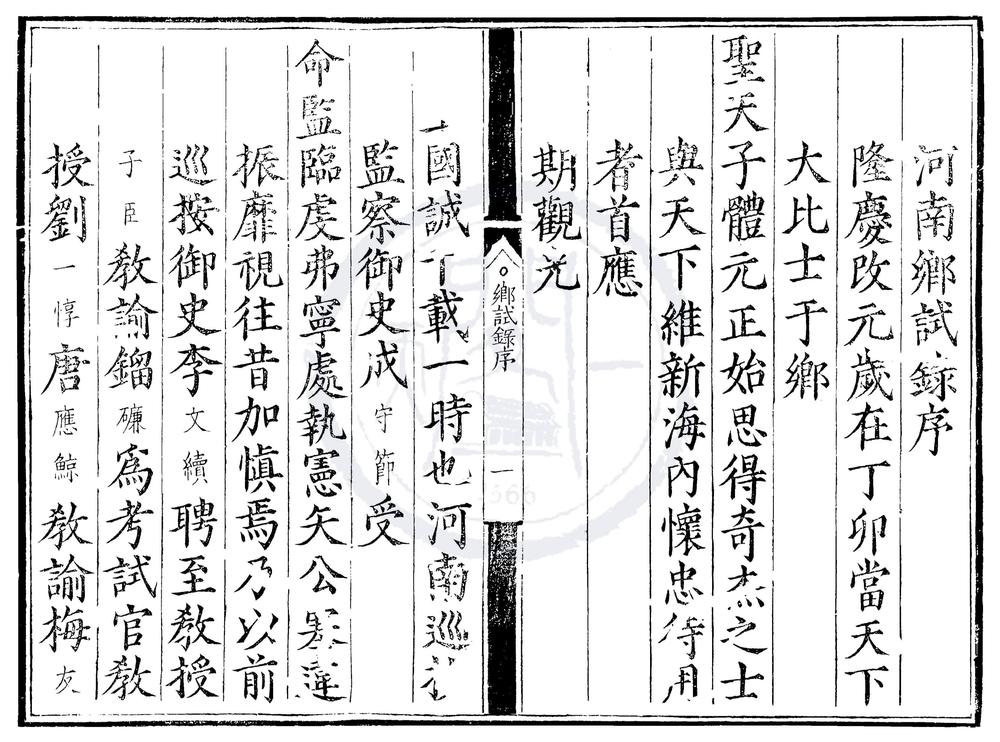 河南鄉試錄序
隆慶改元歲在丁卯當天下
大比士于鄉
聖天子體元正始思得奇杰之士
與天下維新海內懷忠待用
者首應
期觀光
鄉試錄序
一
國誠千載一時也河南巡
監察御史成守節受
命監臨虔弗寧處執憲矢公
振靡視往昔加慎焉乃以前
巡按御史李文續聘至教授
子臣教諭鎦磏爲考試官教
授劉一惇唐應鯨教諭梅友